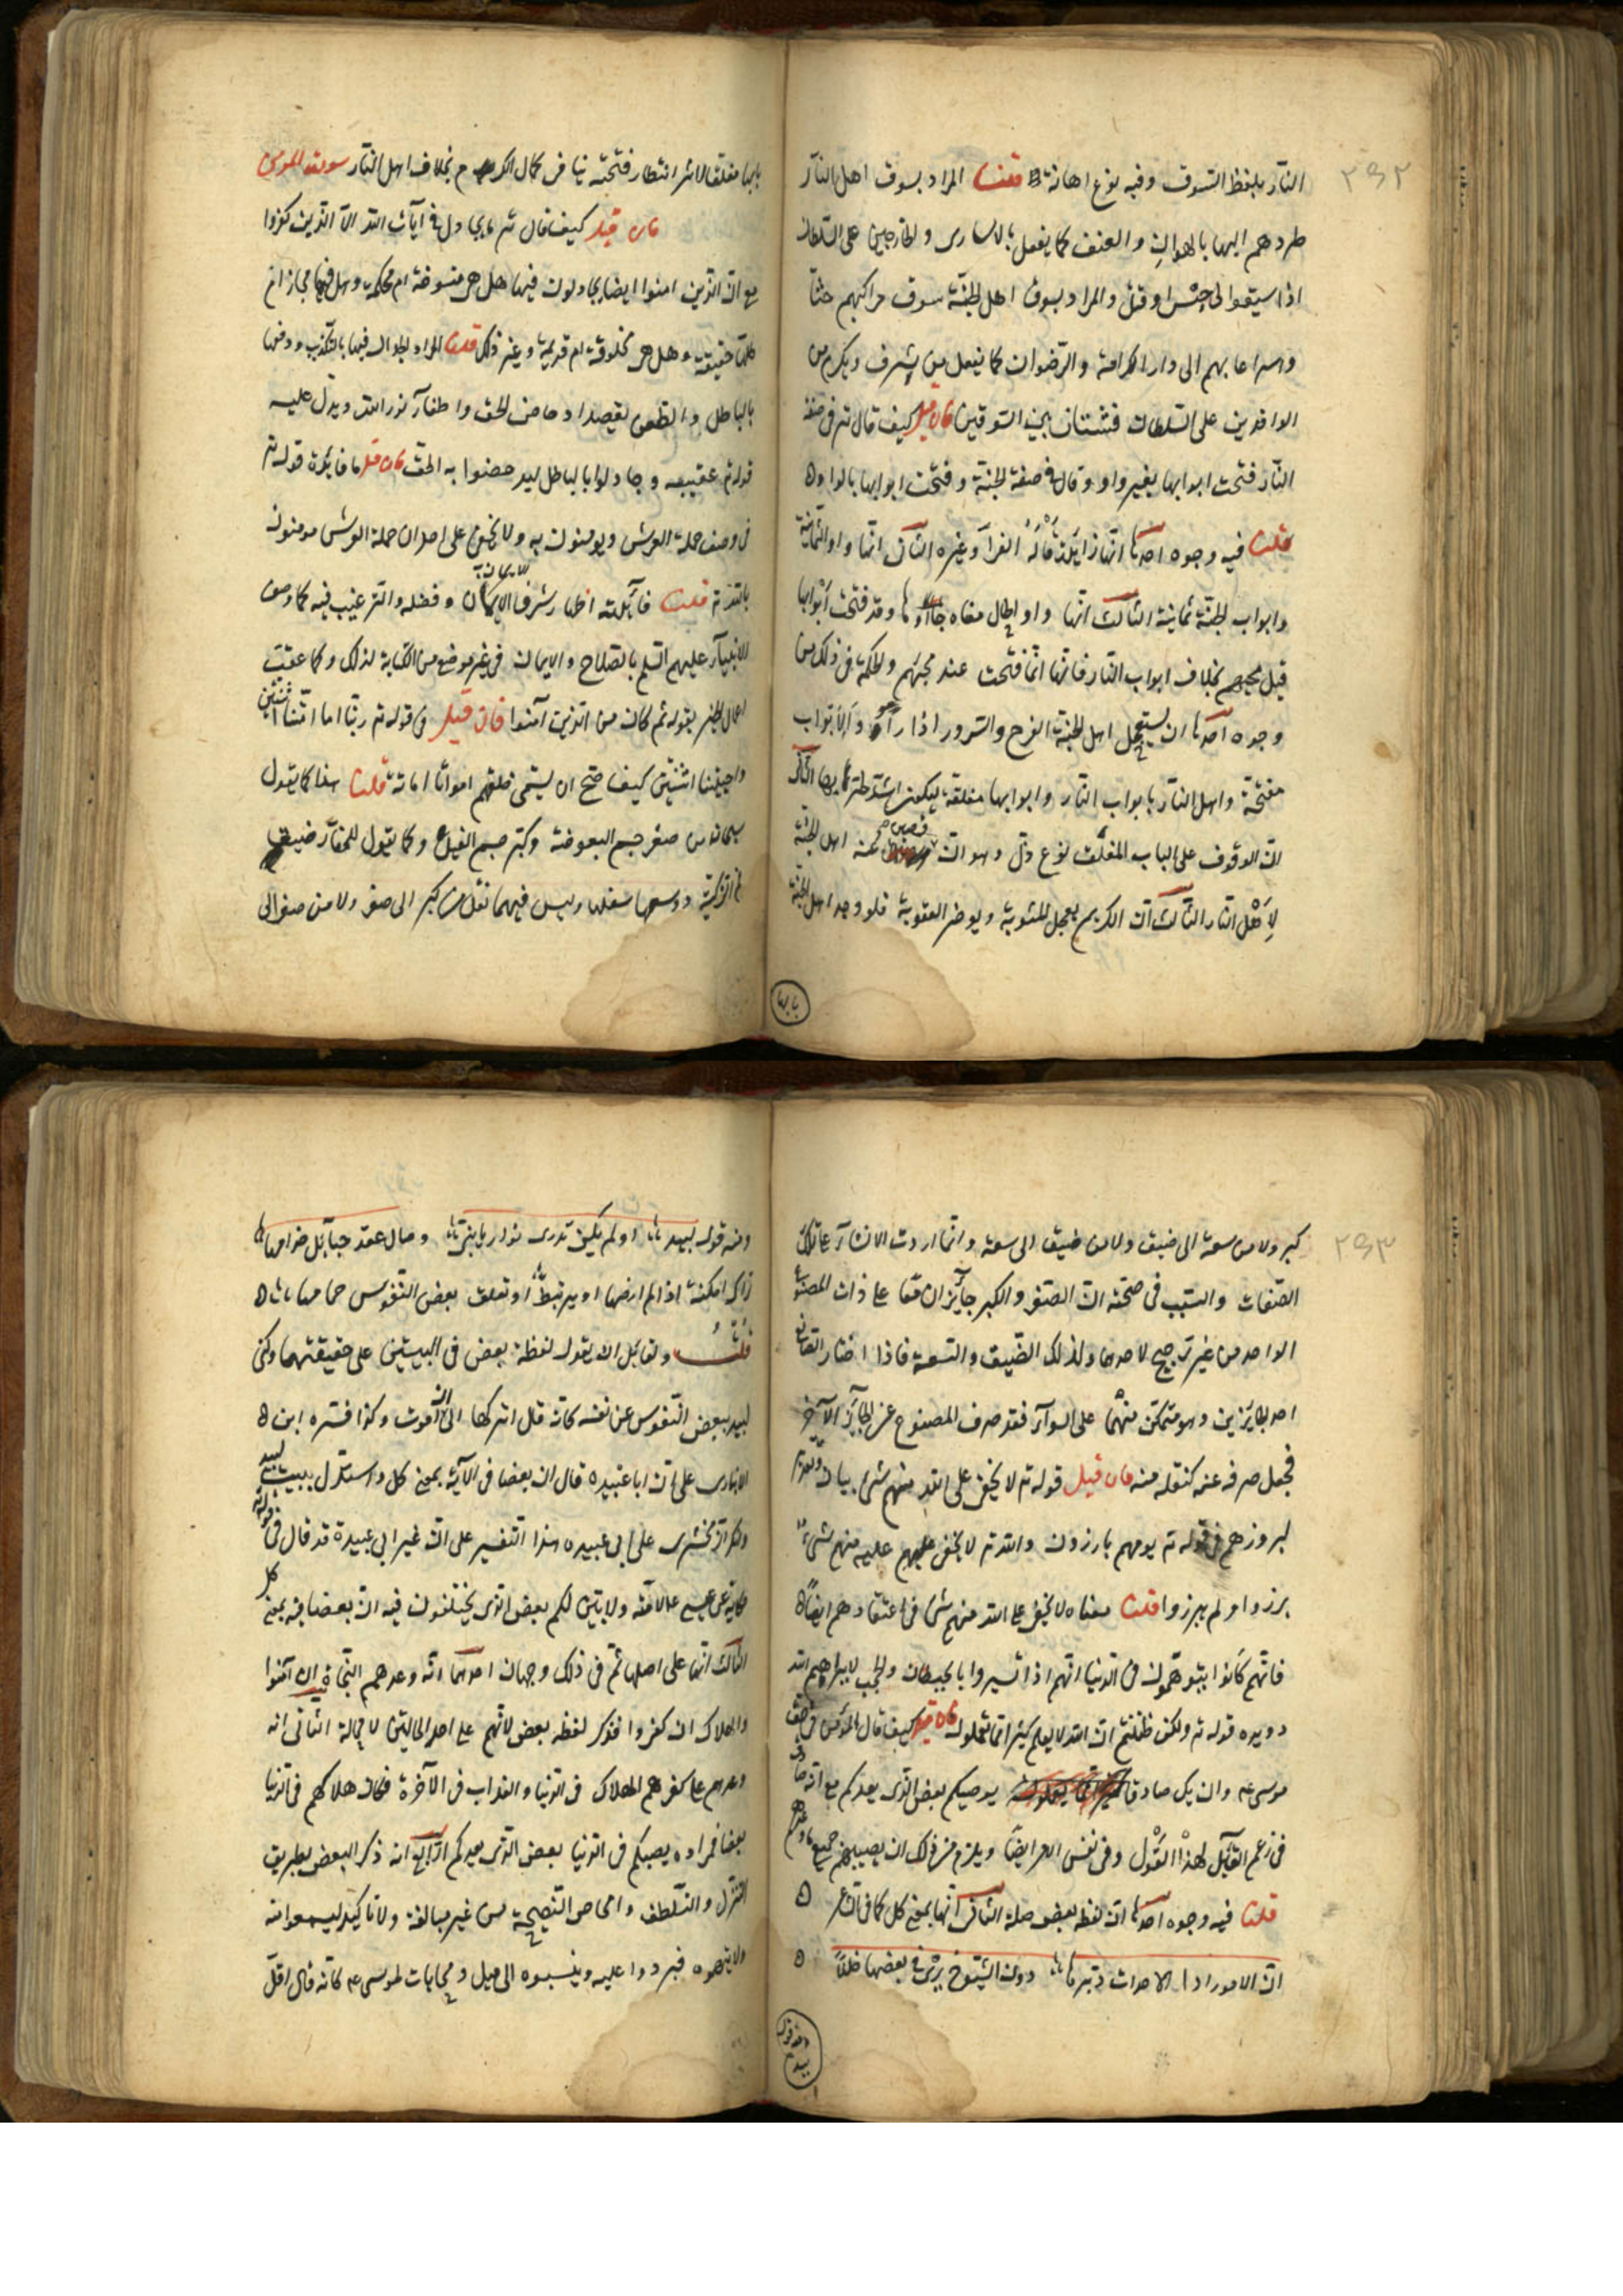 ٢٩٢
النار بلفظ السوق وفيه نوع اهانة قلنا المراد بسوق اهل النار
طردهم اليها بالهوان والعنف كما يفعل بالاسارى والخارجين على السلطان
اذا سيقوا الى حبس او قتل والمراد بسوق اهل الجنة سوق مراكبهم حثا
واسراعا بهم الى دار الكرامة والرضوان كما يفعل بمن يشرف ويكرم من
الوافدين على السلطان فشتان بين السوقين فان قيل كيف قال تع فى صفة
النار فتحت ابوابها بغير واو وقال فى صفة الجنة وفتحت ابوابها بالواو
قلنا فيه وجوه احدها انها زايدة قاله الفرآ وغيره الثانى انها واو الثمانية
وابواب الجنة ثمانية الثالث انها واو الحال معناه جاؤها وقد فتحت ابوابها
قبل مجيئهم بخلاف ابواب النار فانها انما فتحت عند مجيئهم والحكمة فى ذلك من
وجوه احدها ان يستعجل اهل الجنة الفرح والسرور اذا رأوا الابواب
مفتحة واهل النار يأتون النار وابوابها مغلقة ليكون اشد لحرها الثانى
ان الوقوف على الباب المغلق نوع ذل وهوان فصين عنه اهل الجنة
لا اهل النار الثالث ان الكريم يعجل المثوبة ويؤخر العقوبة فلو وجد اهل الجنة
بابها
بابها مغلقا لاثر انتظار فتحه ينافى كمال الكرم بخلاف اهل النار سورة المؤمن
فان قيل كيف قال تع ما يجادل فى آيات الله الا الذين كفروا
مع ان الذين امنوا ايضا يجادلون فيها هل هى منسوخة ام محكمة وهل فيها مجاز ام
كلها حقيقة وهل هى مخلوقة ام قديمة وغير ذلك قلنا المراد الجدال فيها بالتكذيب ودفعها
بالباطل والطعن بقصد ادحاض الحق واطفآء نور الله ويدل عليه
قوله تع عقيبه وجادلوا بالباطل ليدحضوا به الحق فان قيل ما فايدة قوله تع
فى وصف حملة العرش ويؤمنون به ولا يخفى على احد ان حملة العرش مؤمنون
بالله تع قلنا فآيدته اظهار شرف الايمان وفضله والترغيب فيه كما وصف
الانبيآء عليهم السلم بالصلاح والايمان فى غير موضع من كتابه لذلك وكما عقب
اعمال الخير بقوله ثم كان من الذين آمنوا فان قيل فى قوله تع ربنا امتنا اثنتين
واحييتنا اثنتين كيف صح ان يسمى خلقهم امواتا اماتة قلنا هذا كما يقول
سبحان من صغر جسم البعوضة وكبر جسم الفيل وكما تقول للحفار ضيق
فم الركية ووسع اسفلها وليس فيهما نقل من كبر الى صغر ولا من صغر الى
٢٩٣
كبر ولا من سعة الى ضيق ولا من ضيق الى سعة وانما اردت الانشآء على تلك
الصفات والسبب فى صحته ان الصغر والكبر جآيزان معا على ذات المصنوع
الواحد من غير ترجيح لاحدهما ولذلك الضيق والسعة فاذا اختار الصانع
احد الجايزين وهو متمكن منهما على السوآء فقد صرف المصنوع عن الجآيز الآخر
فجعل صرفه عنه كنقله منه فان قيل قوله تع لا يخفى على الله منهم شئ بيان وتقرير
لبروزهم فى قوله تع يوم هم بارزون والله تع لا يخفى عليه منهم شئ
برزوا ام لم يبرزوا قلنا معناه لا يخفى على الله منهم شئ فى اعتقادهم ايضا
فانهم كانوا يتوهمون فى الدنيا انهم اذا تستروا بالحيطان والحجب لا يراهم الله
دويده قوله تع ولكن ظننتم ان الله لا يعلم كثيرا مما تعملون فان قيل كيف قال المؤمن فى حق
موسى عم وان يك صادقا يصبكم بعض الذى يعدكم مع انه صادق
فى زعم القآيل لهذا القول وفى نفس الامر ايضا ويلزم من ذلك ان يصيبهم جميع ما وعدهم
قلنا فيه وجوه احدها ان لفظة بعض صلة الثانى انها بمعنى كل كما فى قول الشاعر
ان الامور اذا الاحداث دبرها دون الشيوخ ترى فى بعضها خللا
ومنه قول لبيد
ومنه قول لبيد او لم يكن تدرى نوار باننى وصال عقد حبآيل جذامها
تراك امكنة اذا لم ارضها او يرتبط او تعلق بعض النفوس حمامها
قلت ولقايل ان يقول لفظة بعض فى البيتين على حقيقتهما وكنى
لبيد ببعض النفوس عن نفسه كانه قال اتركها الى ان اموت وكذا فسره ابن
الانبارى على ان ابا عبيدة قال ان بعضا فى الآية بمعنى كل واستدل ببيت لبيد
وانكر الزمخشرى على ابى عبيده هذا التفسير على ان غير ابى عبيدة قد قال فى قوله تع
حكاية عن عيسى عم لامته ولابين لكم بعض الذى تختلفون فيه ان بعضا فيه بمعنى كل
الثالث انها على اصلها ثم فى ذلك وجهان احدهما انه وعدهم النجاة ان آمنوا
والهلاك ان كفروا فذكر لفظة بعض لانهم على احد الحالتين لا محالة الثانى انه
وعدهم على كفرهم الهلاك فى الدنيا والعذاب فى الآخرة فكان هلاكهم فى الدنيا
بعضا فمراده يصبكم فى الدنيا بعض الذى يعدكم الرابع انه ذكر البعض بطريق
التنزل والتلطف وامحاض النصيحة من غير مبالغة ولا تأكيد ليسمعوا منه
ولا يتهموه فيردوا عليه وينسبوه الى ميل ومحاباة لموسى عم كانه قال اقل